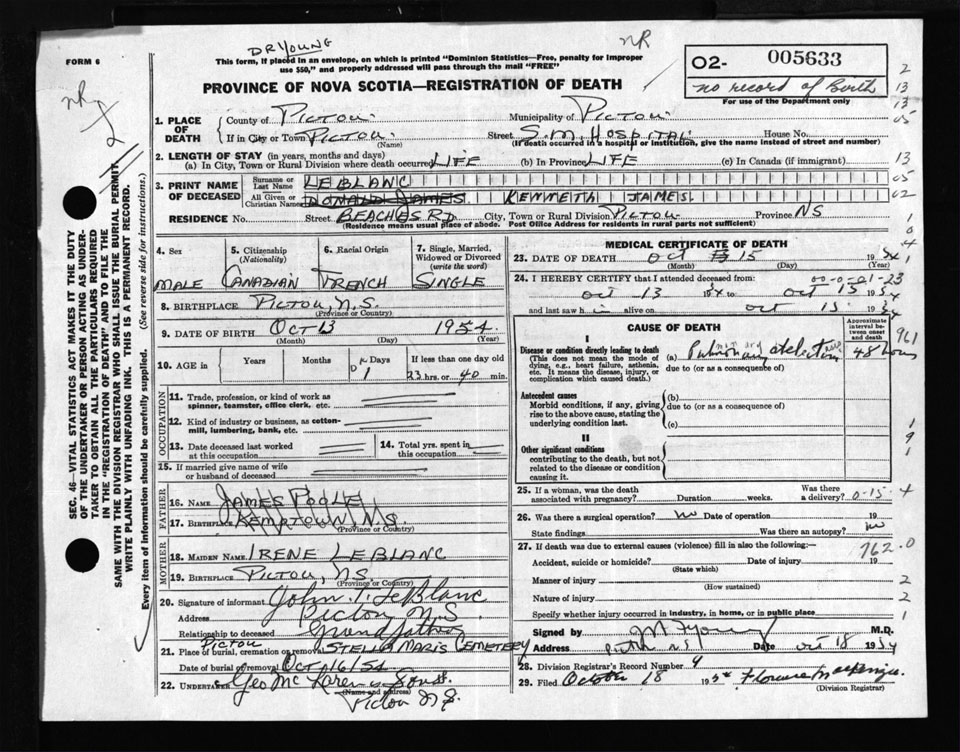 DR YOUNG
NR
FORM 6
This form, if placed in an envelope, on which is printed "Dominion Statistics—Free, penalty for improper
use $50," and properly addressed will pass through the mail "FREE"
PROVINCE OF NOVA SCOTIA—REGISTRATION OF DEATH
O2- 005633
no record of Birth
For use of the Department only
NR
1. PLACE OF DEATH
County of PICTOU Municipality of PICTOU
If in City or Town PICTOU Street S.M. HOSPITAL House No.
(Name) (If death occurred in a hospital or institution, give the name instead of street and number)
2. LENGTH OF STAY (in years, months and days)
(a) In City, Town or Rural Division where death occurred LIFE (b) In Province LIFE (c) In Canada (if immigrant)
3. PRINT NAME OF DECEASED
Surname or Last Name LEBLANC
All Given or Christian Names DONALD JAMES KENNETH JAMES
RESIDENCE No. Street BEACHES RD City, Town or Rural Division PICTOU Province NS
(Residence means usual place of abode. Post Office Address for residents in rural parts not sufficient)
4. Sex
MALE
5. Citizenship
(Nationality)
CANADIAN
6. Racial Origin
FRENCH
7. Single, Married,
Widowed or Divorced
(write the word)
SINGLE
8. BIRTHPLACE PICTOU, N.S.
(Province or Country)
9. DATE OF BIRTH OCT 13 1954
(Month) (Day) (Year)
10. AGE in Years Months Days If less than one day old
1 23 hrs. or 40 min.
OCCUPATION
11. Trade, profession, or kind of work as
spinner, teamster, office clerk, etc.
12. Kind of industry or business, as cotton-
mill, lumbering, bank, etc.
13. Date deceased last worked
at this occupation
14. Total yrs. spent in
this occupation
15. If married give name of wife
or husband of deceased
FATHER
16. NAME JAMES POOLE
17. BIRTHPLACE KEMPTOWN, N.S.
(Province or Country)
MOTHER
18. MAIDEN NAME IRENE LEBLANC
19. BIRTHPLACE PICTOU, NS
(Province or Country)
20. Signature of informant John T. LeBlanc
Address Pictou N.S.
Relationship to deceased Grandfather
21. Place of burial, cremation or removal PICTOU STELLA MARIS CEMETERY
Date of burial or removal Oct 16/54
22. UNDERTAKER Geo McLaren & Sons
(Name and address)
Pictou N.S.
MEDICAL CERTIFICATE OF DEATH
23. DATE OF DEATH Oct 15 1954
(Month) (Day) (Year)
24. I HEREBY CERTIFY that I attended deceased from:
Oct 13 1954 to Oct 15 1954
and last saw h im alive on Oct 15 1954
CAUSE OF DEATH
Approximate
interval be-
tween onset
and death
I
Disease or condition directly leading to death
(This does not mean the mode of
dying, e.g., heart failure, asthenia,
etc. It means the disease, injury, or
complication which caused death.)
(a) Pulmonary atelectasis 48 hours
due to (or as a consequence of)
Antecedent causes
Morbid conditions, if any, giving
rise to the above cause, stating the
underlying condition last.
(b)
due to (or as a consequence of)
(c)
II
Other significant conditions
contributing to the death, but not
related to the disease or condition
causing it.
25. If a woman, was the death
associated with pregnancy? Duration weeks. Was there
a delivery? 0-15
26. Was there a surgical operation? no Date of operation 19
State findings Was there an autopsy? no
27. If death was due to external causes (violence) fill in also the following:—
762.0
Accident, suicide or homicide? Date of injury 19
(State which)
Manner of injury
(How sustained)
Nature of injury
Specify whether injury occurred in industry, in home, or in public place
Signed by M F Young M.D.
Address Pictou NS Date Oct 18 1954
28. Division Registrar's Record Number 9
29. Filed October 18 1954 Florence MacKenzie
(Division Registrar)
SEC. 46—VITAL STATISTICS ACT MAKES IT THE DUTY
OF THE UNDERTAKER OR PERSON ACTING AS UNDER-
TAKER TO OBTAIN ALL THE PARTICULARS REQUIRED
IN THE "REGISTRATION OF DEATH" AND TO FILE THE
SAME WITH THE DIVISION REGISTRAR WHO SHALL ISSUE THE BURIAL PERMIT
WRITE PLAINLY WITH UNFADING INK. THIS IS A PERMANENT RECORD.
Every item of information should be carefully supplied. (See reverse side for instructions.)